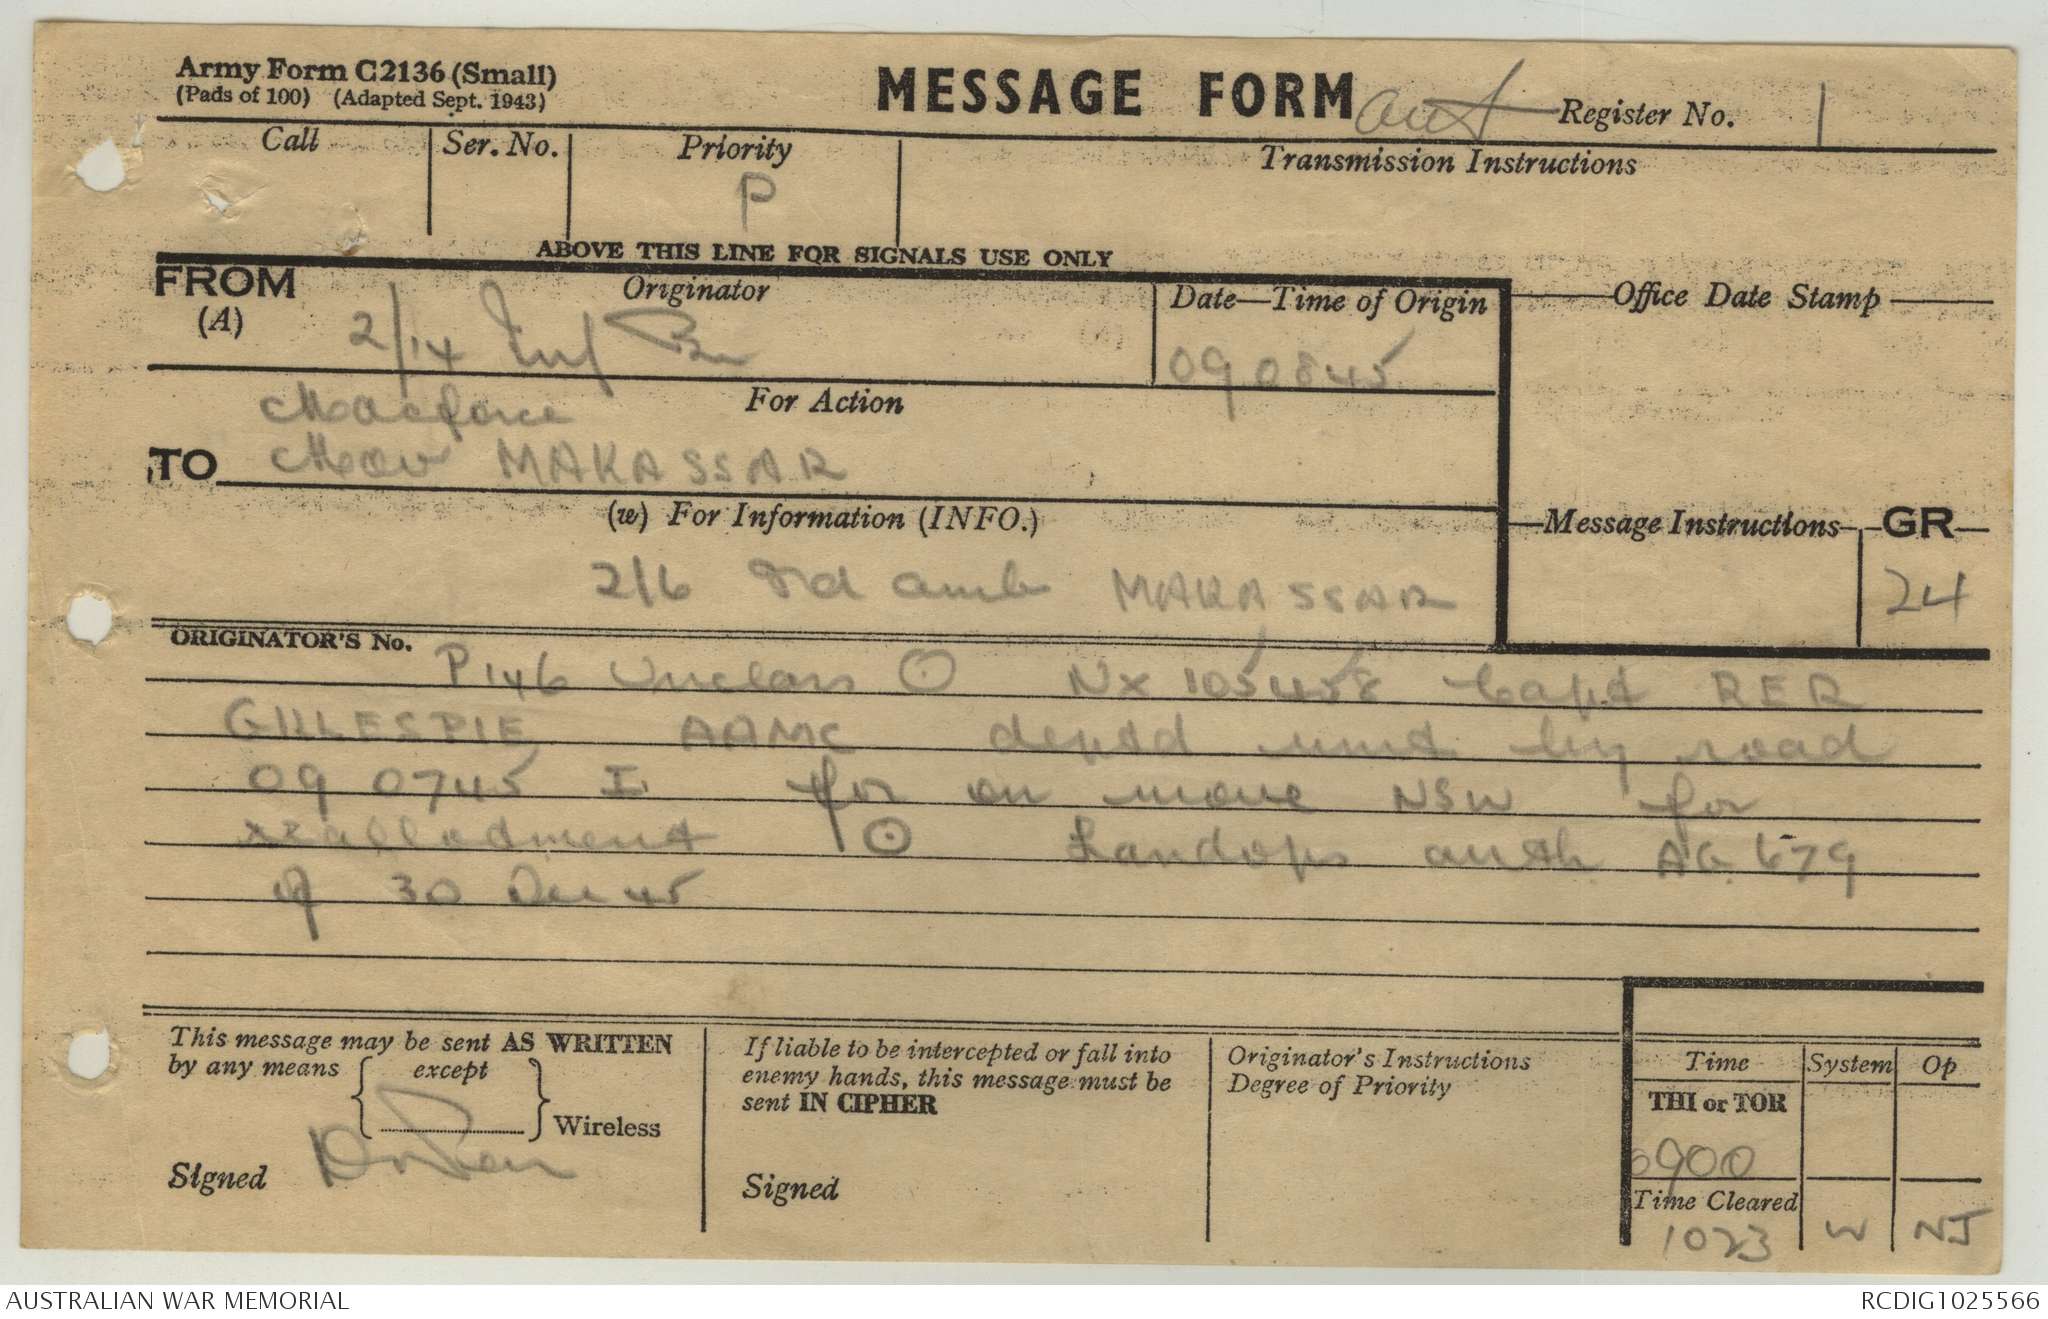 Army Form C2136 (Small)
(Pads of 100) (Adapted Sept. 1943)
MESSAGE FORM
out
Register No. 1
Call
Ser. No.
Priority
P
Transmission Instructions
ABOVE THIS LINE FOR SIGNALS USE ONLY
FROM
(A)
Originator
2/14 Inf Bn
Date—Time of Origin
090845
Office Date Stamp
For Action
Macforce
TO Mov MAKASSAR
(w) For Information (INFO.)
2/6 Fd Amb MAKASSAR
Message Instructions
GR
24
ORIGINATOR'S No.
P146 Unclass ⊙ NX 105458 Capt RER
GILLESPIE AAMC deptd unit by road
09 0745 I for on move NSW for
reallotment ⊙ Landops auth AG 679
of 30 Dec 45
This message may be sent AS WRITTEN
by any means
except
Wireless
Signed
If liable to be intercepted or fall into
enemy hands, this message must be
sent IN CIPHER
Signed
Originator's Instructions
Degree of Priority
Time
System
Op
THI or TOR
0900
Time Cleared
1023
W
NJ
AUSTRALIAN WAR MEMORIAL
RCDIG1025566